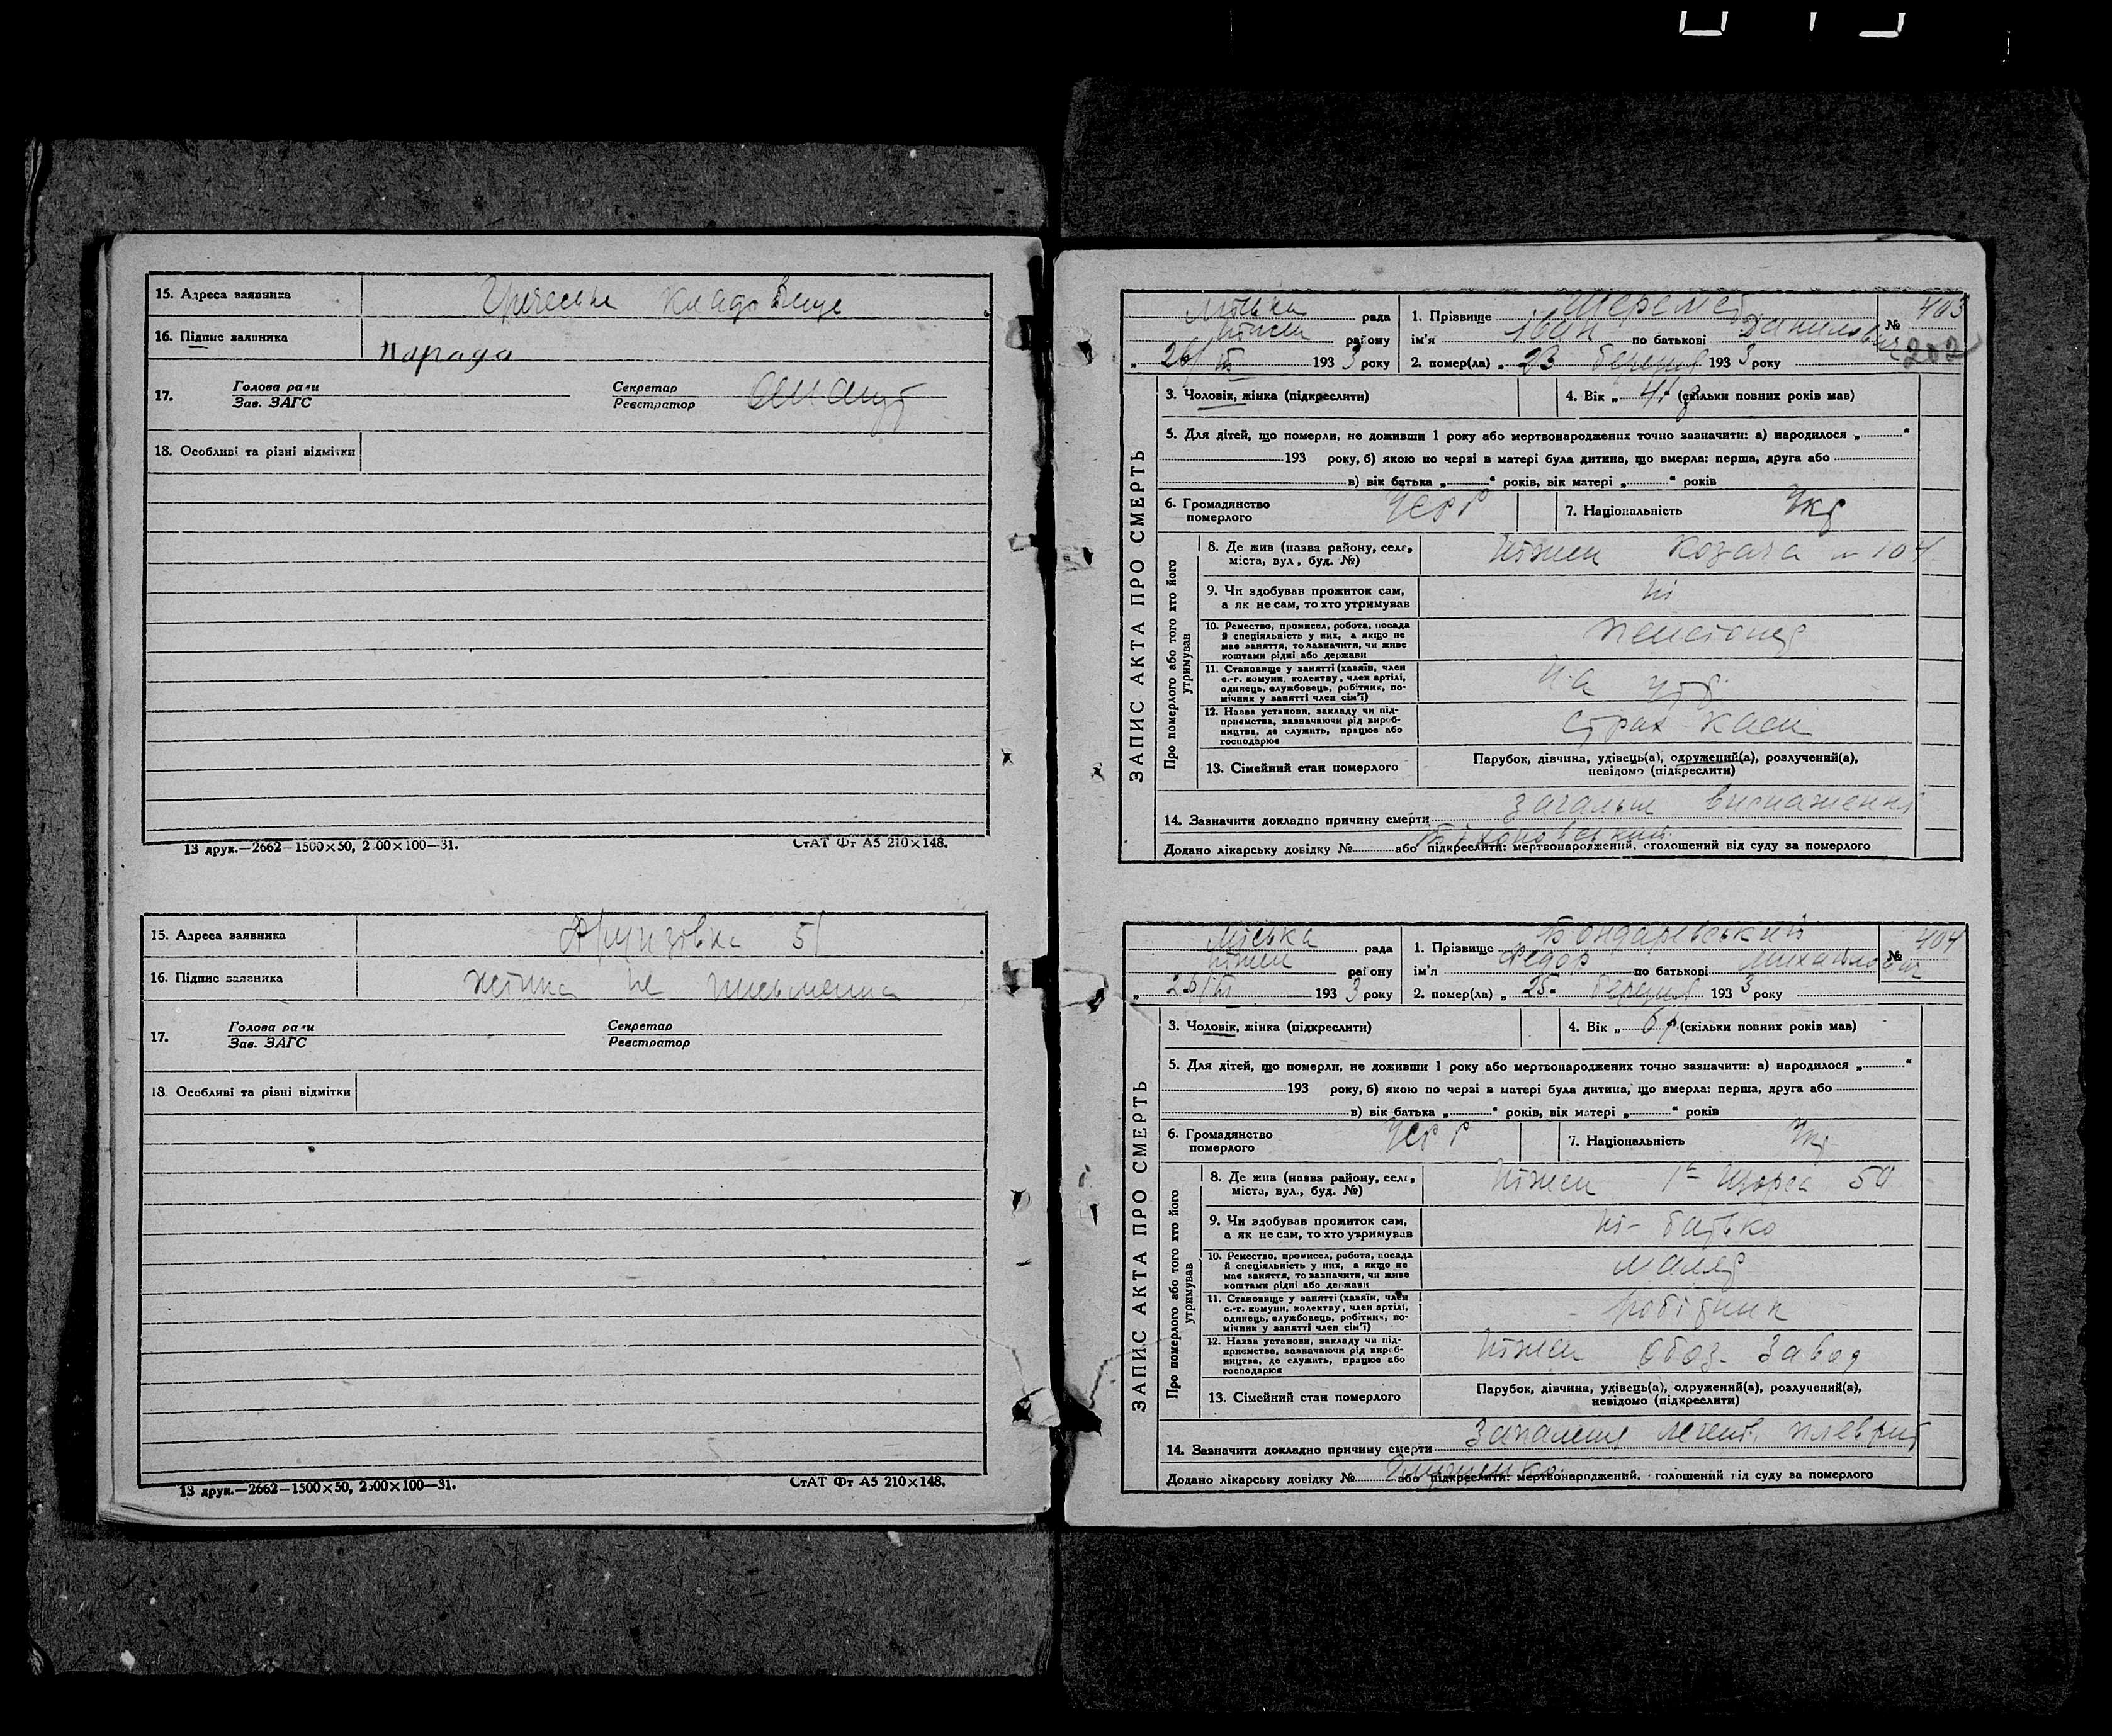 15. Адреса заявника Грецьке кладовище
16. Підпис заявника Парада
17. Голова ради Зав. ЗАГС Секретар Реєстратор
18. Особливі та різні відмітки
13 друк.—2662—1500×50, 2500×100—31. СтАТ Фт А5 210×148.
15. Адреса заявника 51
16. Підпис заявника жінка не письменна
17. Голова ради Зав. ЗАГС Секретар Реєстратор
18. Особливі та різні відмітки
13 друк.—2662—1500×50, 2500×100—31. СтАТ Фт А5 210×148.
ЗАПИС АКТА ПРО СМЕРТЬ
Міська рада 1. Прізвище Шеремет № 403
Ніжен району ім'я Іван по батькові Данилович 202
„ 26/III 1933 року 2. помер(ла) „ 23 березня 1933 року
3. Чоловік, жінка (підкреслити) 4. Вік „ 41 (скільки повних років мав)
5. Для дітей, що померли, не доживши 1 року або мертвонароджених точно зазначити: а) народилося „ “
193 року, б) якою по черзі в матері була дитина, що вмерла: перша, друга або
в) вік батька „ “ років, вік матері „ “ років
6. Громадянство померлого УСРР 7. Національність Укр
Про померлого або того хто його утримував
8. Де жив (назва району, села, міста, вул., буд. №) Ніжен Козача № 104
9. Чи здобував прожиток сам, а як не сам, то хто утримував ні
10. Ремество, промисел, робота, посада й спеціяльність у них, а якщо не має заняття, то зазначити, чи живе коштами рідні або держави пенсіонер
11. Становище у занятті (хазяїн, член с.-г. комуни, колективу, член артілі, одинець, службовець, робітник, помічник у занятті член сім'ї) на утр.
12. Назва установи, закладу чи підприємства, зазначаючи рід виробництва, де служить, працює або господарює Страх каси
13. Сімейний стан померлого Парубок, дівчина, удівець(а), одружений(а), розлучений(а), невідомо (підкреслити)
14. Зазначити докладно причину смерти загальне виснаження
Додано лікарську довідку № або підкреслити: мертвонароджений, оголошений від суду за померлого
ЗАПИС АКТА ПРО СМЕРТЬ
Міська рада 1. Прізвище Бондаревський № 404
Ніжен району ім'я Федор по батькові Михайлович
„ 26/III 1933 року 2. помер(ла) „ 25 березня 1933 року
3. Чоловік, жінка (підкреслити) 4. Вік „ (скільки повних років мав)
5. Для дітей, що померли, не доживши 1 року або мертвонароджених точно зазначити: а) народилося „ “
193 року, б) якою по черзі в матері була дитина, що вмерла: перша, друга або
в) вік батька „ “ років, вік матері „ “ років
6. Громадянство померлого УСРР 7. Національність Укр
Про померлого або того хто його утримував
8. Де жив (назва району, села, міста, вул., буд. №) Ніжен Щорса 50
9. Чи здобував прожиток сам, а як не сам, то хто утримував ні- батько
10. Ремество, промисел, робота, посада й спеціяльність у них, а якщо не має заняття, то зазначити, чи живе коштами рідні або держави маляр
11. Становище у занятті (хазяїн, член с.-г. комуни, колективу, член артілі, одинець, службовець, робітник, помічник у занятті член сім'ї) робітник
12. Назва установи, закладу чи підприємства, зазначаючи рід виробництва, де служить, працює або господарює Ніжен Обоз. Завод
13. Сімейний стан померлого Парубок, дівчина, удівець(а), одружений(а), розлучений(а), невідомо (підкреслити)
14. Зазначити докладно причину смерти Запалення легень, плеврит
Додано лікарську довідку № або підкреслити: мертвонароджений, оголошений від суду за померлого